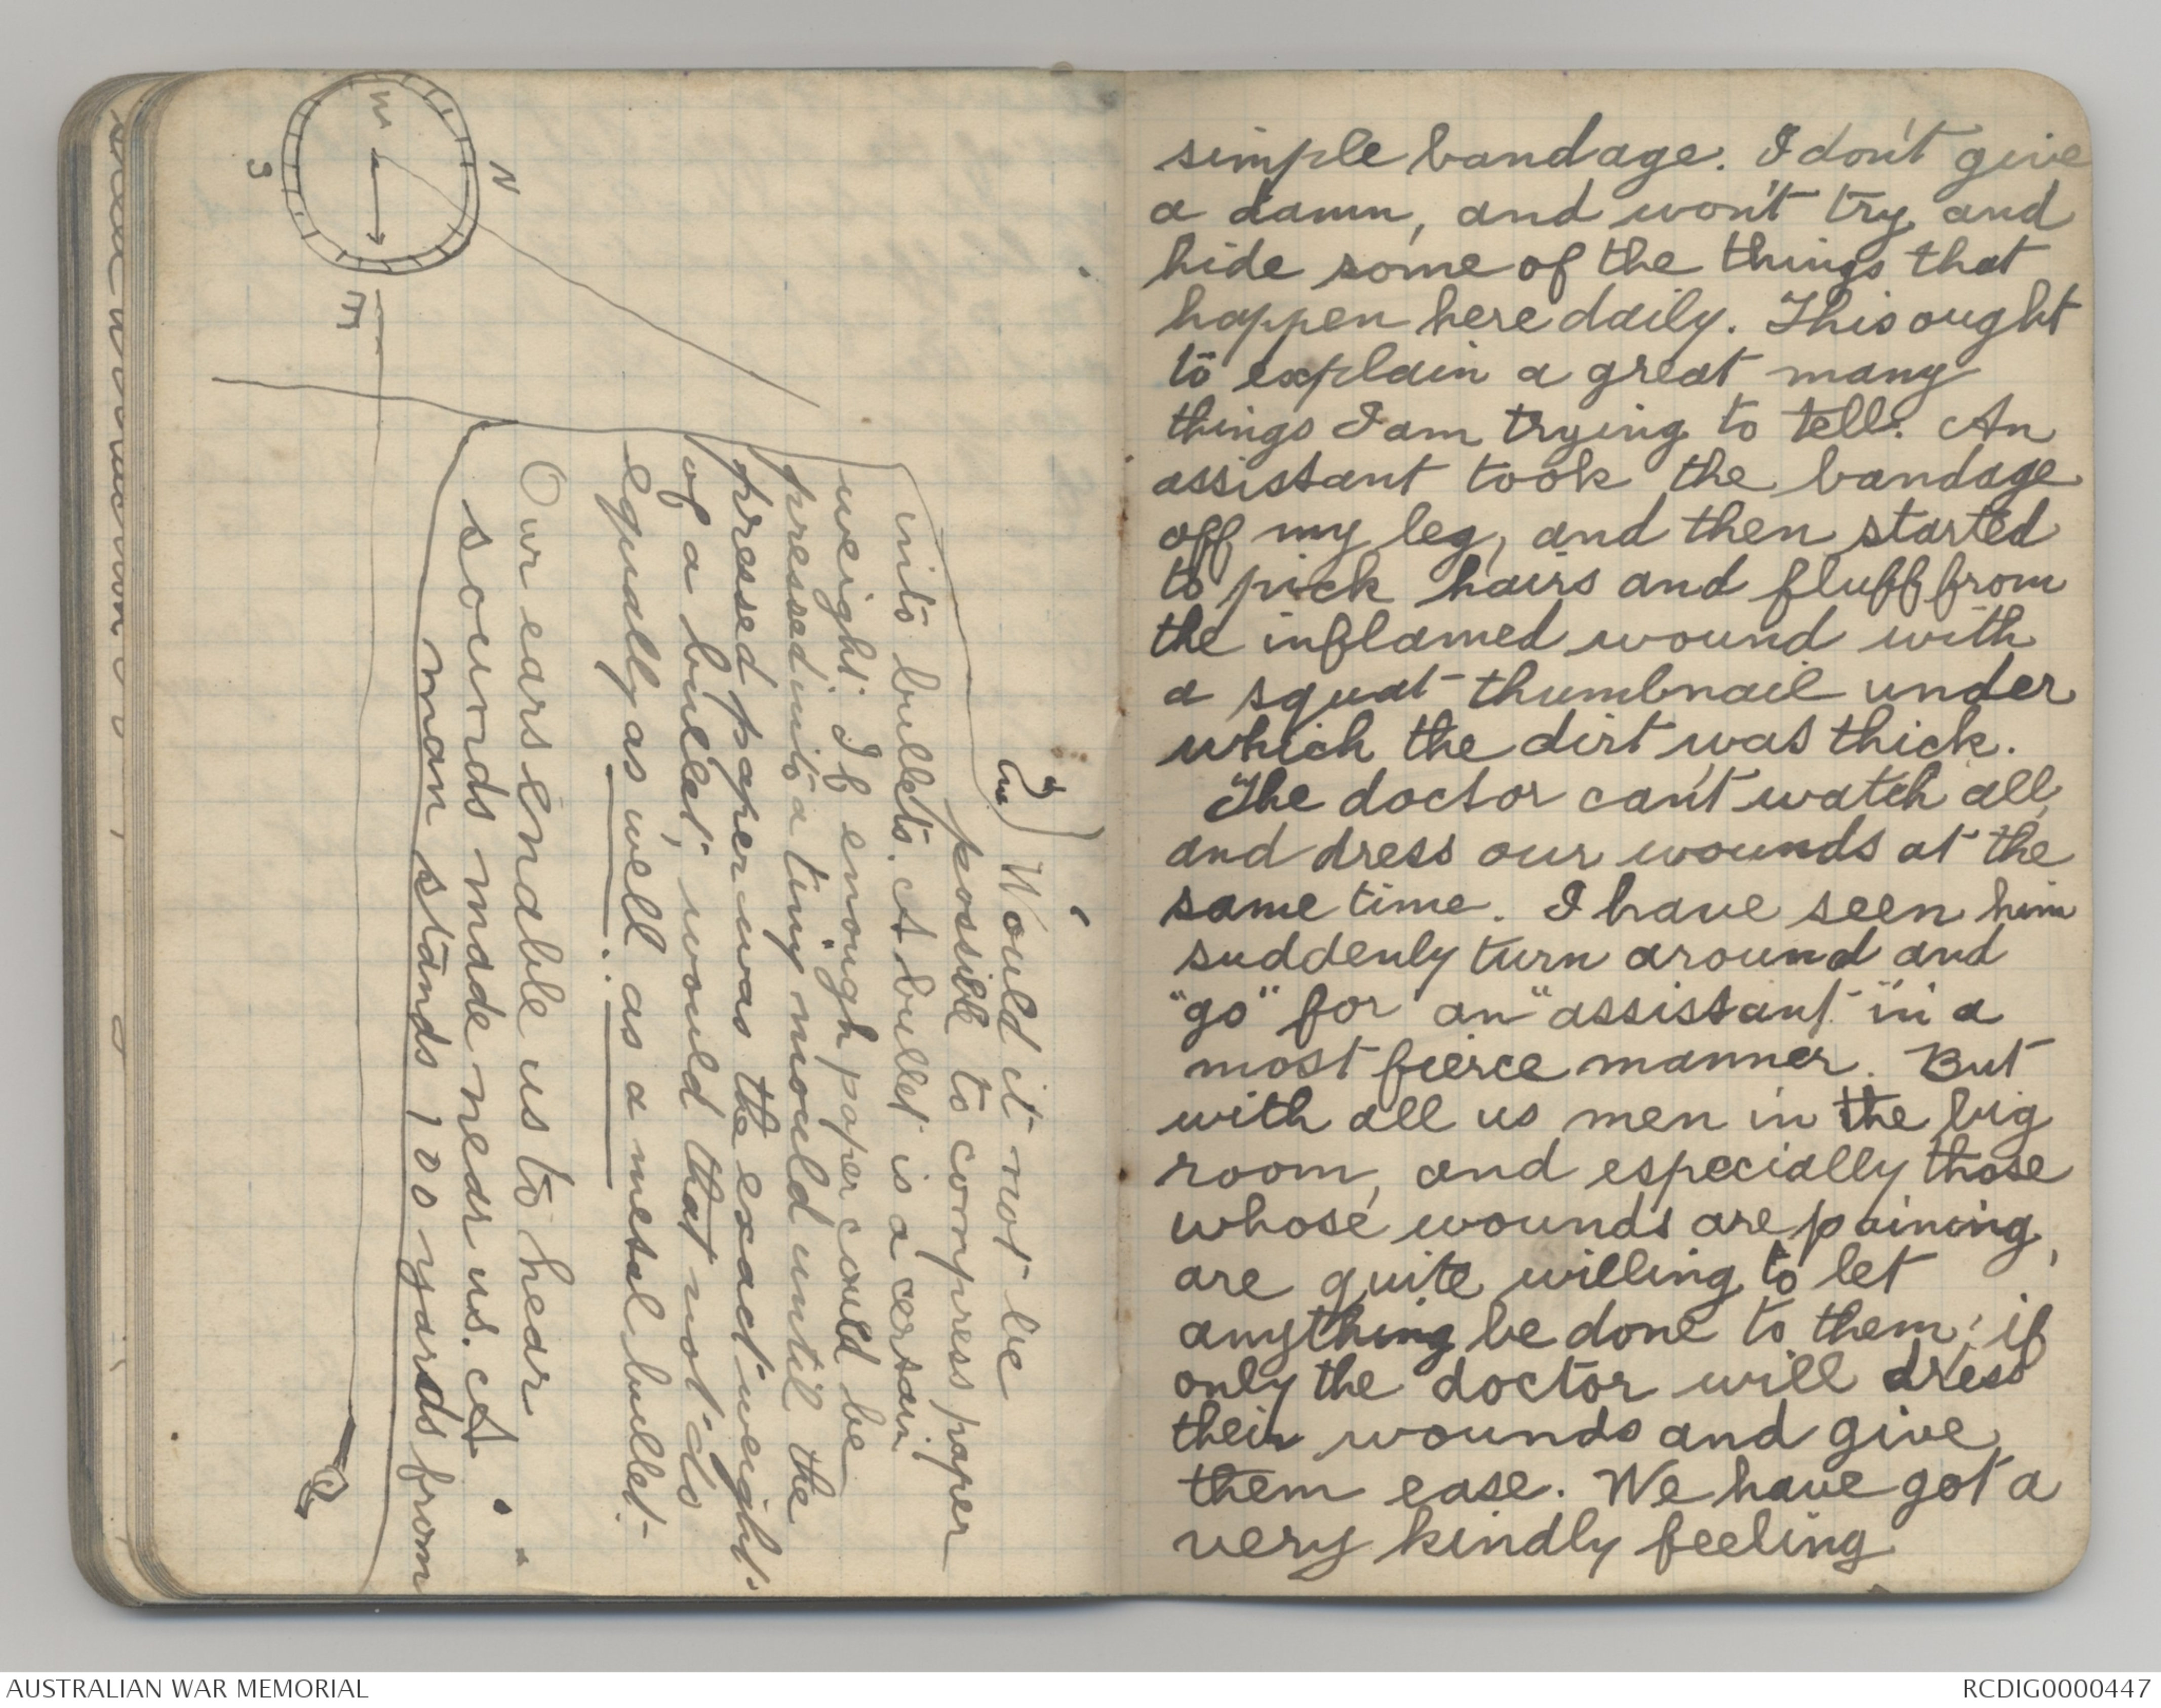 W
N
S
E
Would it not be
possible to compress paper
into bullets. A bullet is a certain
weight. If enough paper could be
pressed into a tiny mould until the
pressed paper was the exact weight
of a bullet, would that not do
equally as well as a metal bullet.
Our ears enable us to hear
sounds made near us. A
man stands 100 yards from
simple bandage. I don't give
a damn, and won't try and
hide some of the things that
happen here daily. This ought
to explain a great many
things I am trying to tell. An
assistant took the bandage
off my leg, and then started
to pick hairs and fluff from
the inflamed wound with
a squat thumbnail under
which the dirt was thick.
The doctor can't watch all
and dress our wounds at the
same time. I have seen him
suddenly turn around and
"go" for an "assistant" in a
most fierce manner. But
with all us men in the big
room, and especially those
whose wounds are paining,
are quite willing to let
anything be done to them; if
only the doctor will dress
their wounds and give
them ease. We have got a
very kindly feeling
AUSTRALIAN WAR MEMORIAL
RCDIG0000447